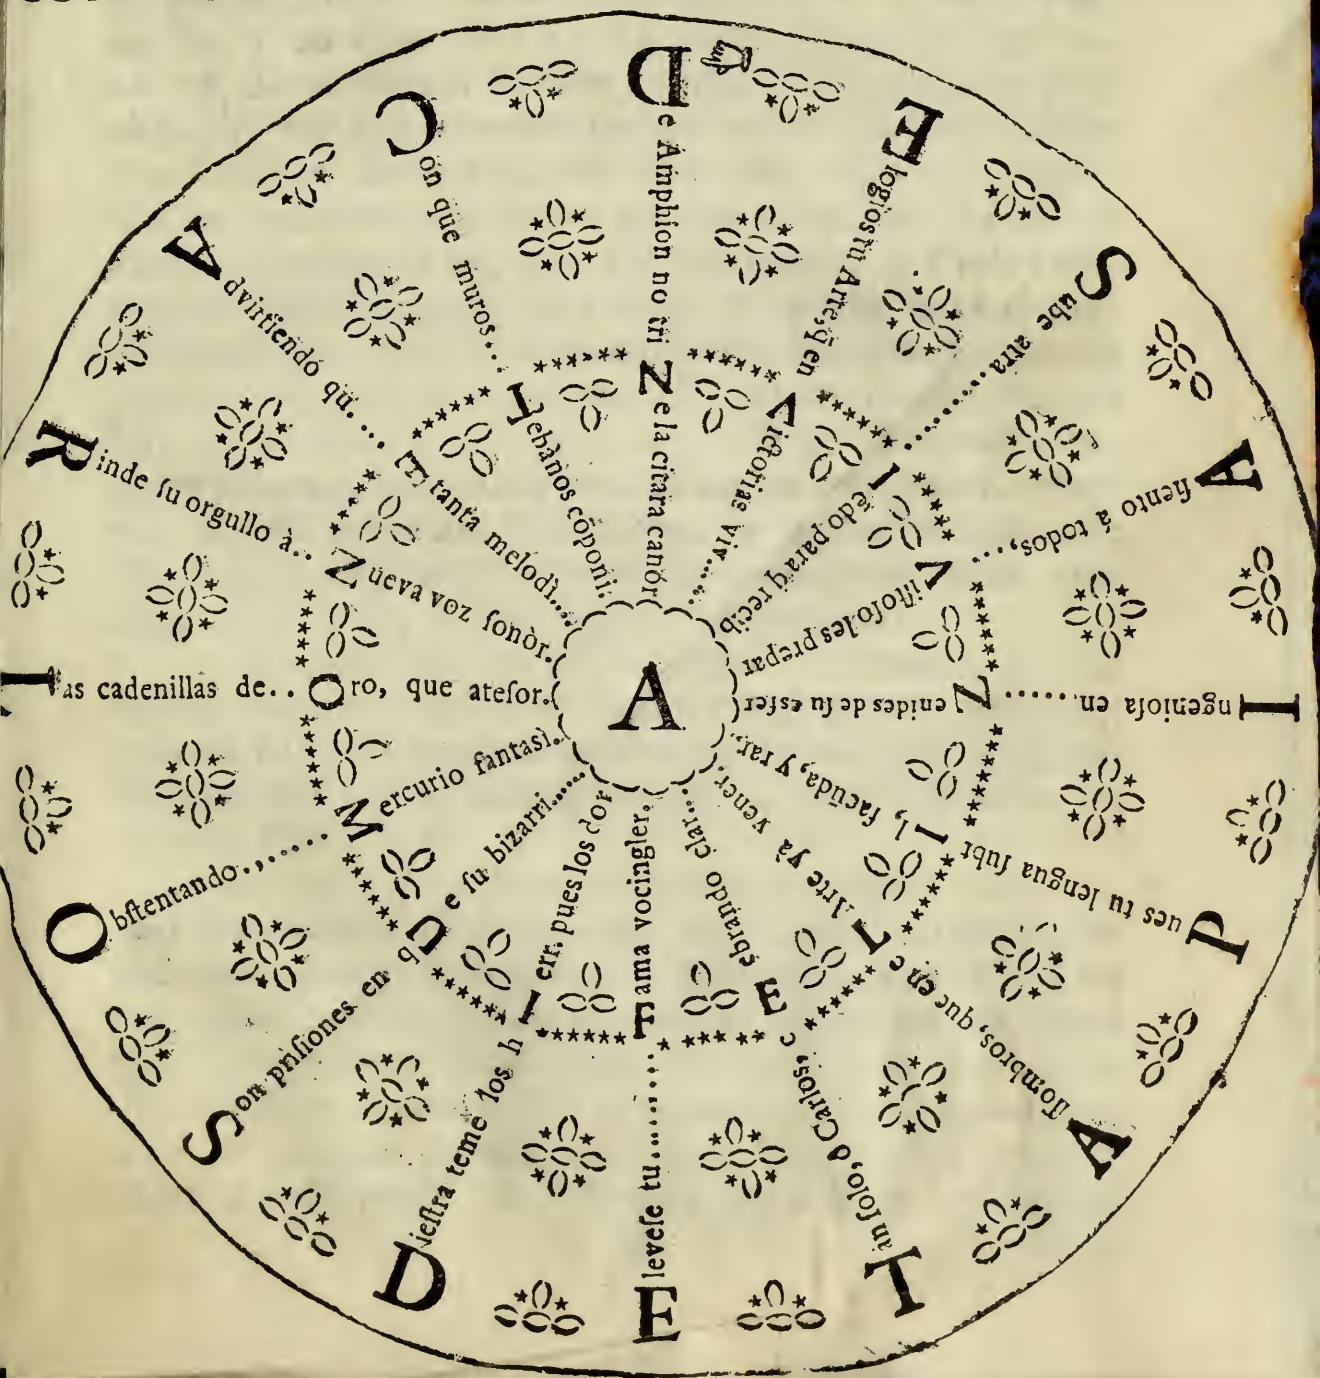 De Amphion no tri Ne la citara canòr
Elogios tu Arte, q̃ en Victorias viv......
Sube atra....... Iēdo para q̃ recib
Aſiento á todos,.... Viſtoſo les prepar
Ingenioſa en...... Nenides de ſu esfer
Pues tu lengua ſubt Il, facūda, y rar..
Aſſombros, que en e L Arte yà vener.
Tàn ſolo, ò Carlos, c Elebrando clar...
Eleveſe tu........ Fama vocingler.
Dieſtra teme los h Ierr. pues los dor
Son priſiones en q Ue ſu bizarri.....
Obſtentando....... Mercurio fantasì.
Las cadenillas de.. Oro, que ateſor.
Rinde ſu orgullo à.. Nueva voz ſonòr.
Advirtiendó qu.... E tanta melodì....
Con que muros... Tebànos cōponi.
A